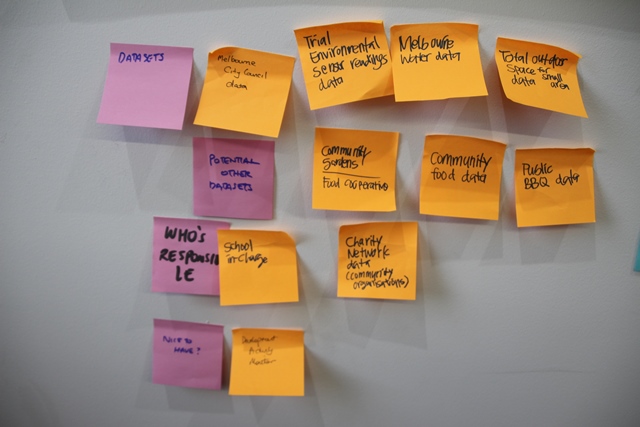 DATASETS
Melbourne
City Council
data
Trial
Environmental
sensor readings
data
Melbourne
water data
Total outdoor
space for small
area
POTENTIAL
OTHER
DATASETS
Community
Gardens
Food cooperative
Community
food data
Public
BBQ data
WHO'S
RESPONSIB
LE
School
in Charge
Charity
Network
data
(community
organisations)
NICE TO
HAVE?
Development
Activity
Monitor